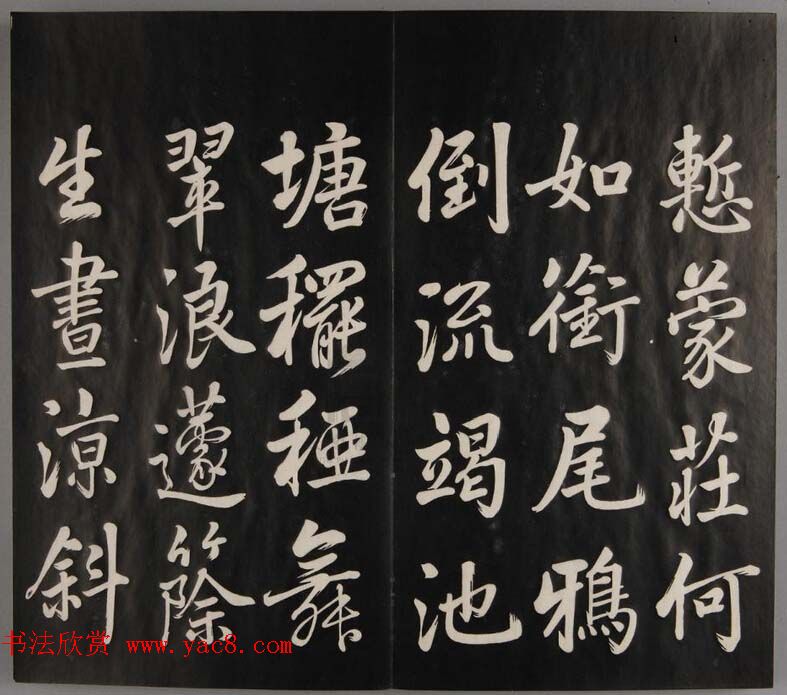 慙蒙莊何
如銜尾鴉
倒流竭池
塘穲稏舞
翠浪蘧篨
生晝涼斜
书法欣赏 www.yac8.com